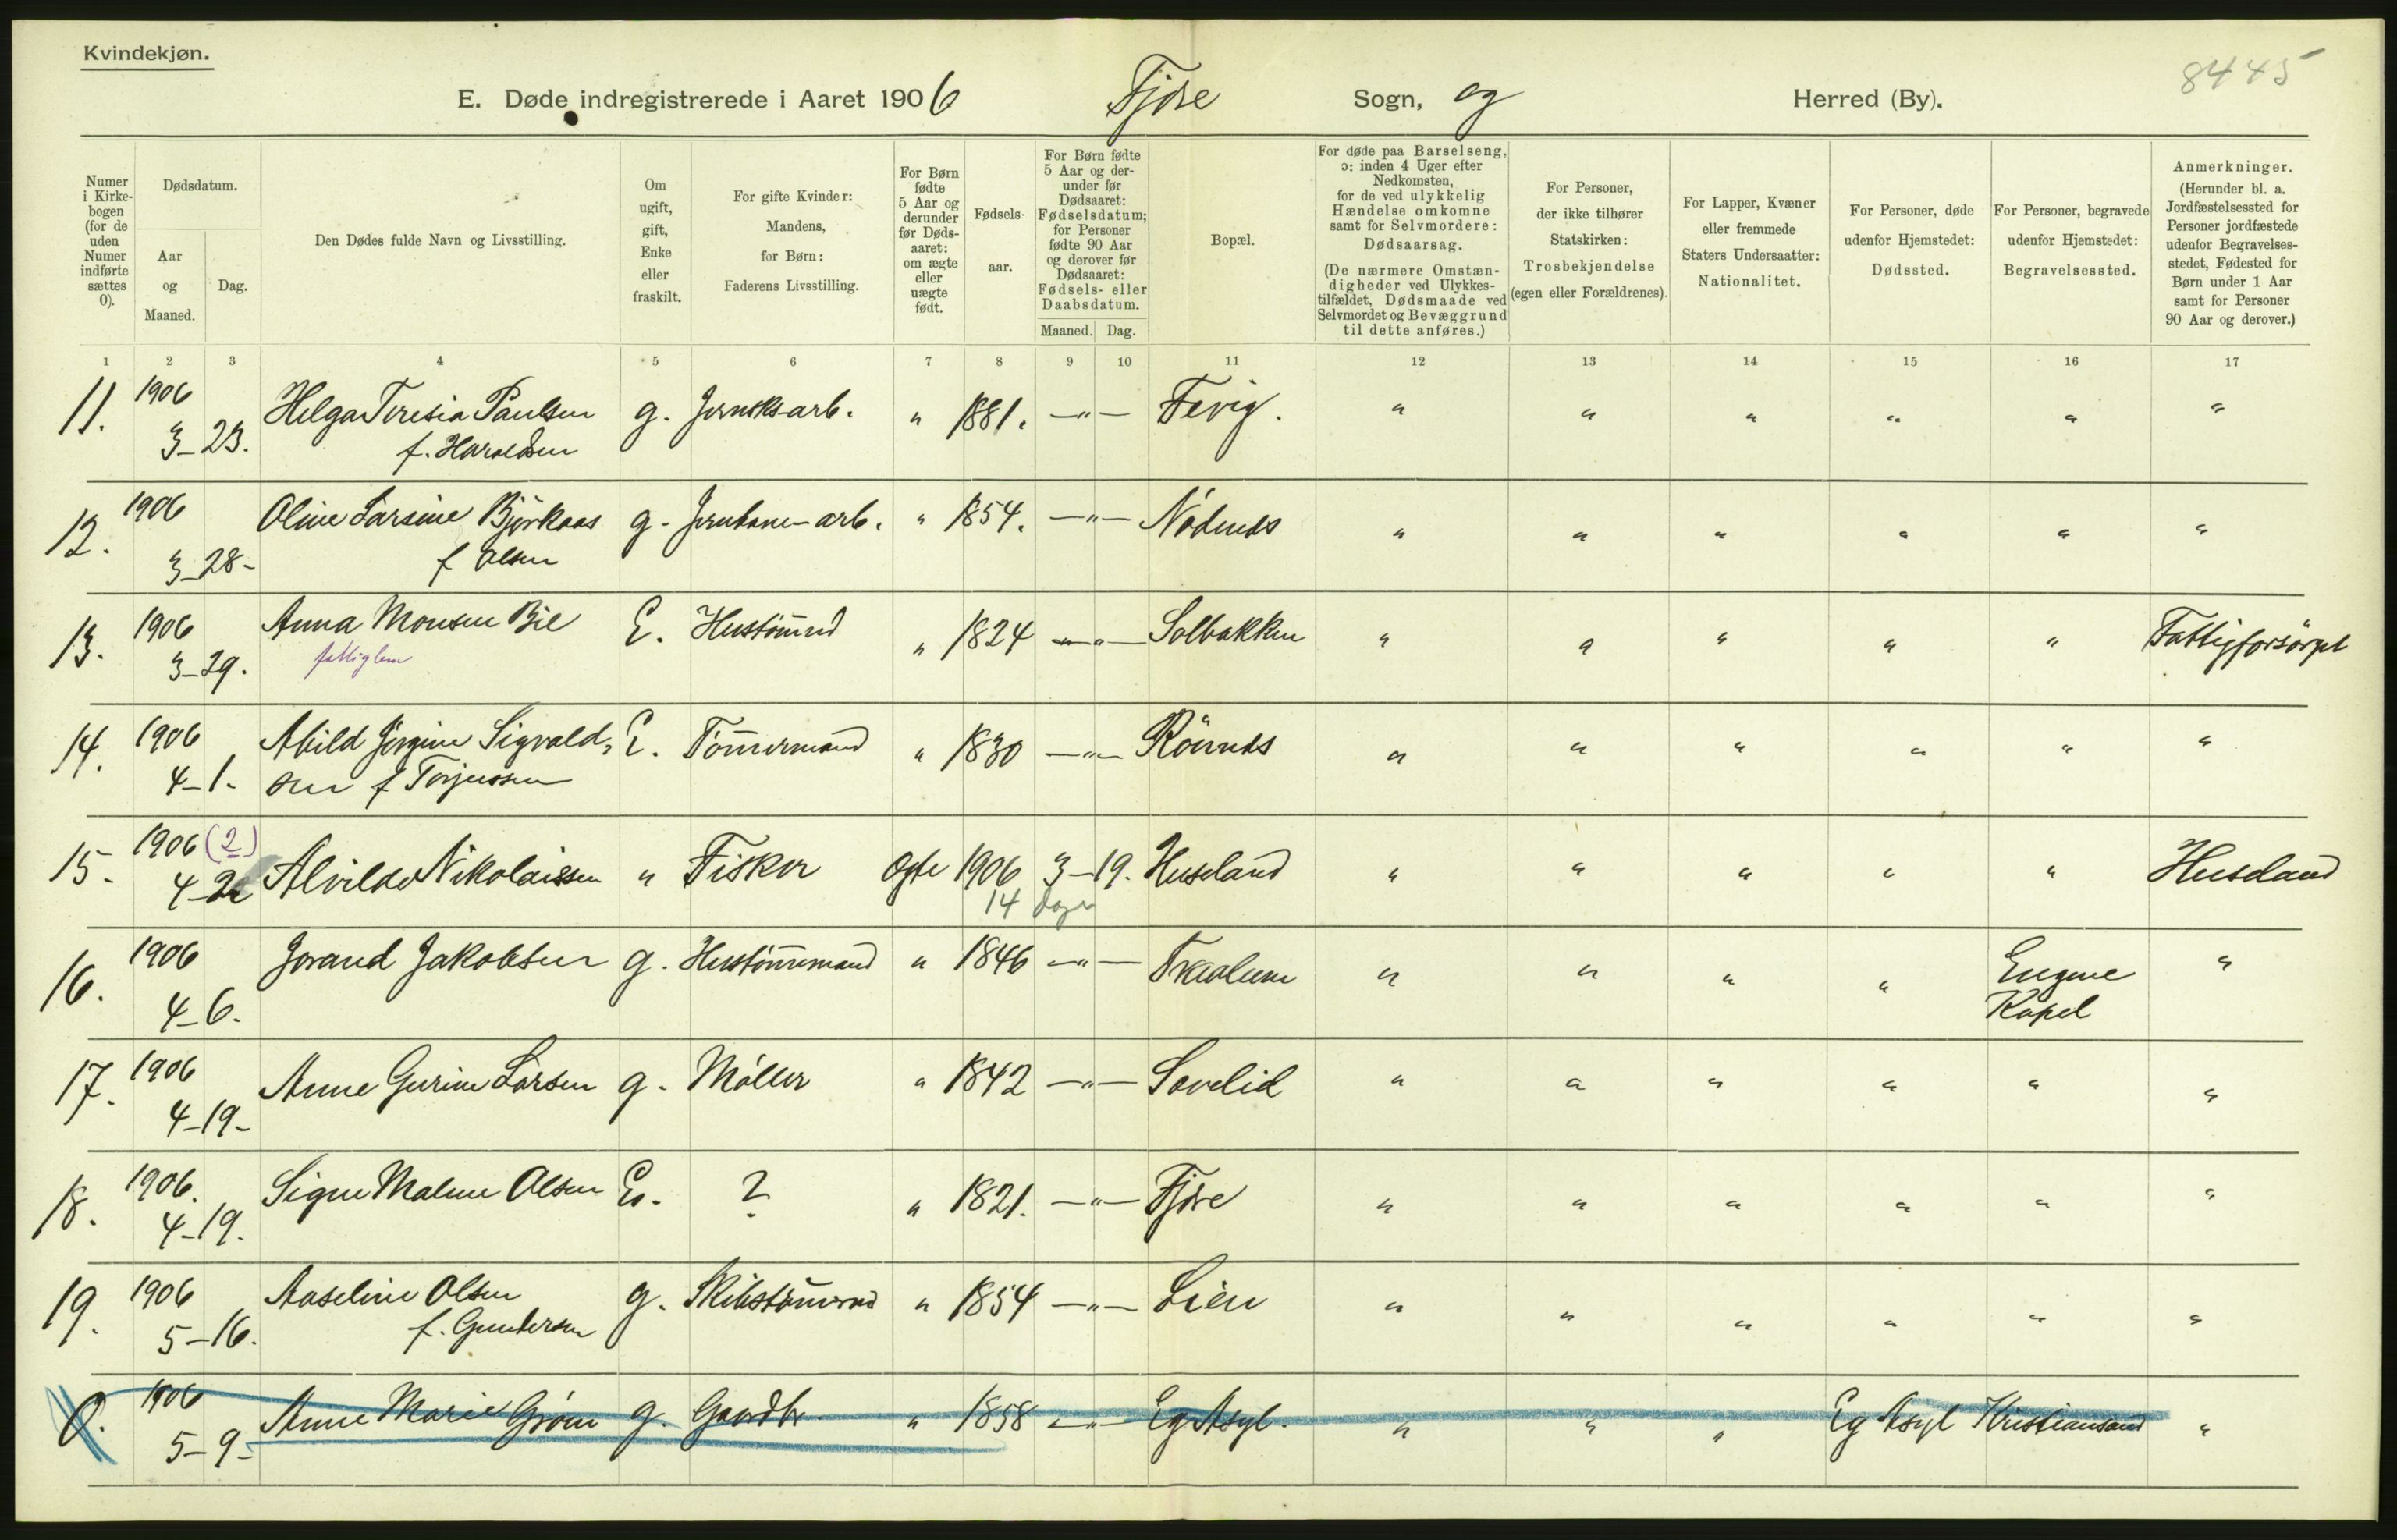 Kvindekjøn.
8445
E. Døde indregistrerede i Aaret 1906 Fjære Sogn, og Herred (By).
Numer i Kirkebogen (for de uden Numer indførte sættes 0).
Dødsdatum.
Aar og Maaned.
Dag.
Den Dødes fulde Navn og Livsstilling.
Om ugift, gift, Enke eller fraskilt.
For gifte Kvinder: Mandens, for Børn: Faderens Livsstilling.
For Børn fødte 5 Aar og derunder før Dødsaaret: om ægte eller uægte født.
Fødselsaar.
For Børn fødte 5 Aar og derunder før Dødsaaret: Fødselsdatum; for Personer fødte 90 Aar og derover før Dødsaaret: Fødsels- eller Daabsdatum.
Maaned. Dag.
Bopæl.
For døde paa Barselseng, ɔ: inden 4 Uger efter Nedkomsten, for de ved ulykkelig Hændelse omkomne samt for Selvmordere: Dødsaarsag.
(De nærmere Omstændigheder ved Ulykkestilfældet, Dødsmaade ved Selvmordet og Bevæggrund til dette anføres.)
For Personer, der ikke tilhører Statskirken: Trosbekjendelse (egen eller Forældrenes).
For Lapper, Kvæner eller fremmede Staters Undersaatter: Nationalitet.
For Personer, døde udenfor Hjemstedet: Dødssted.
For Personer, begravede udenfor Hjemstedet: Begravelsessted.
Anmerkninger.
(Herunder bl. a. Jordfæstelsessted for Personer jordfæstede udenfor Begravelsesstedet, Fødested for Børn under 1 Aar samt for Personer 90 Aar og derover.)
1 2 3 4 5 6 7 8 9 10 11 12 13 14 15 16 17
11. 1906 3-23. Helga Teresia Paulsen g. Jernsksarb. " 1881. -"- Fevig. " " " " " "
f. Haraldsen
12. 1906 3-28- Oline Larsine Bjørkaas g- Jernbane-arb. " 1854. -"- Nødenes " " " " " "
f Olsen
13. 1906 3-29. Anna Monsen Bie E. Hustømmd " 1824 -"- Solbakken " " " " " Fattigforsørget
fattiglem
14. 1906 4-1. Abild Jørgine Sigvald, E. Tømmermand " 1830 -"- Rønnes " " " " " "
sen f Torjussen
15. 1906 (2) 4-2 Alvilde Nikolaissen " Fisker Ægte 1906 3-19. Huseland " " " " " Huseland
14 dage
16. 1906 4-6. Jorand Jakobsen g. Hustømmermand " 1846 -"- " " " " Engene Kapel "
17. 1906 4-19- Anne Gurine Larsen g. Møller " 1842 -"- Sovelid " " " " " "
18. 1906. 4-19. Signe Malene Olsen E. ? " 1821. -"- Fjære " " " " " "
19. 1906 5-16. Aaseline Olsen g. Skibstømmrmd " 1854 -"- Lien " " " " " "
f. Gundersen
0. 1906 5-9- Anne Marie Grøm g. Gaardbr. " 1858 -"- Eg Asyl. " " " Eg Asyl Kristiansand "